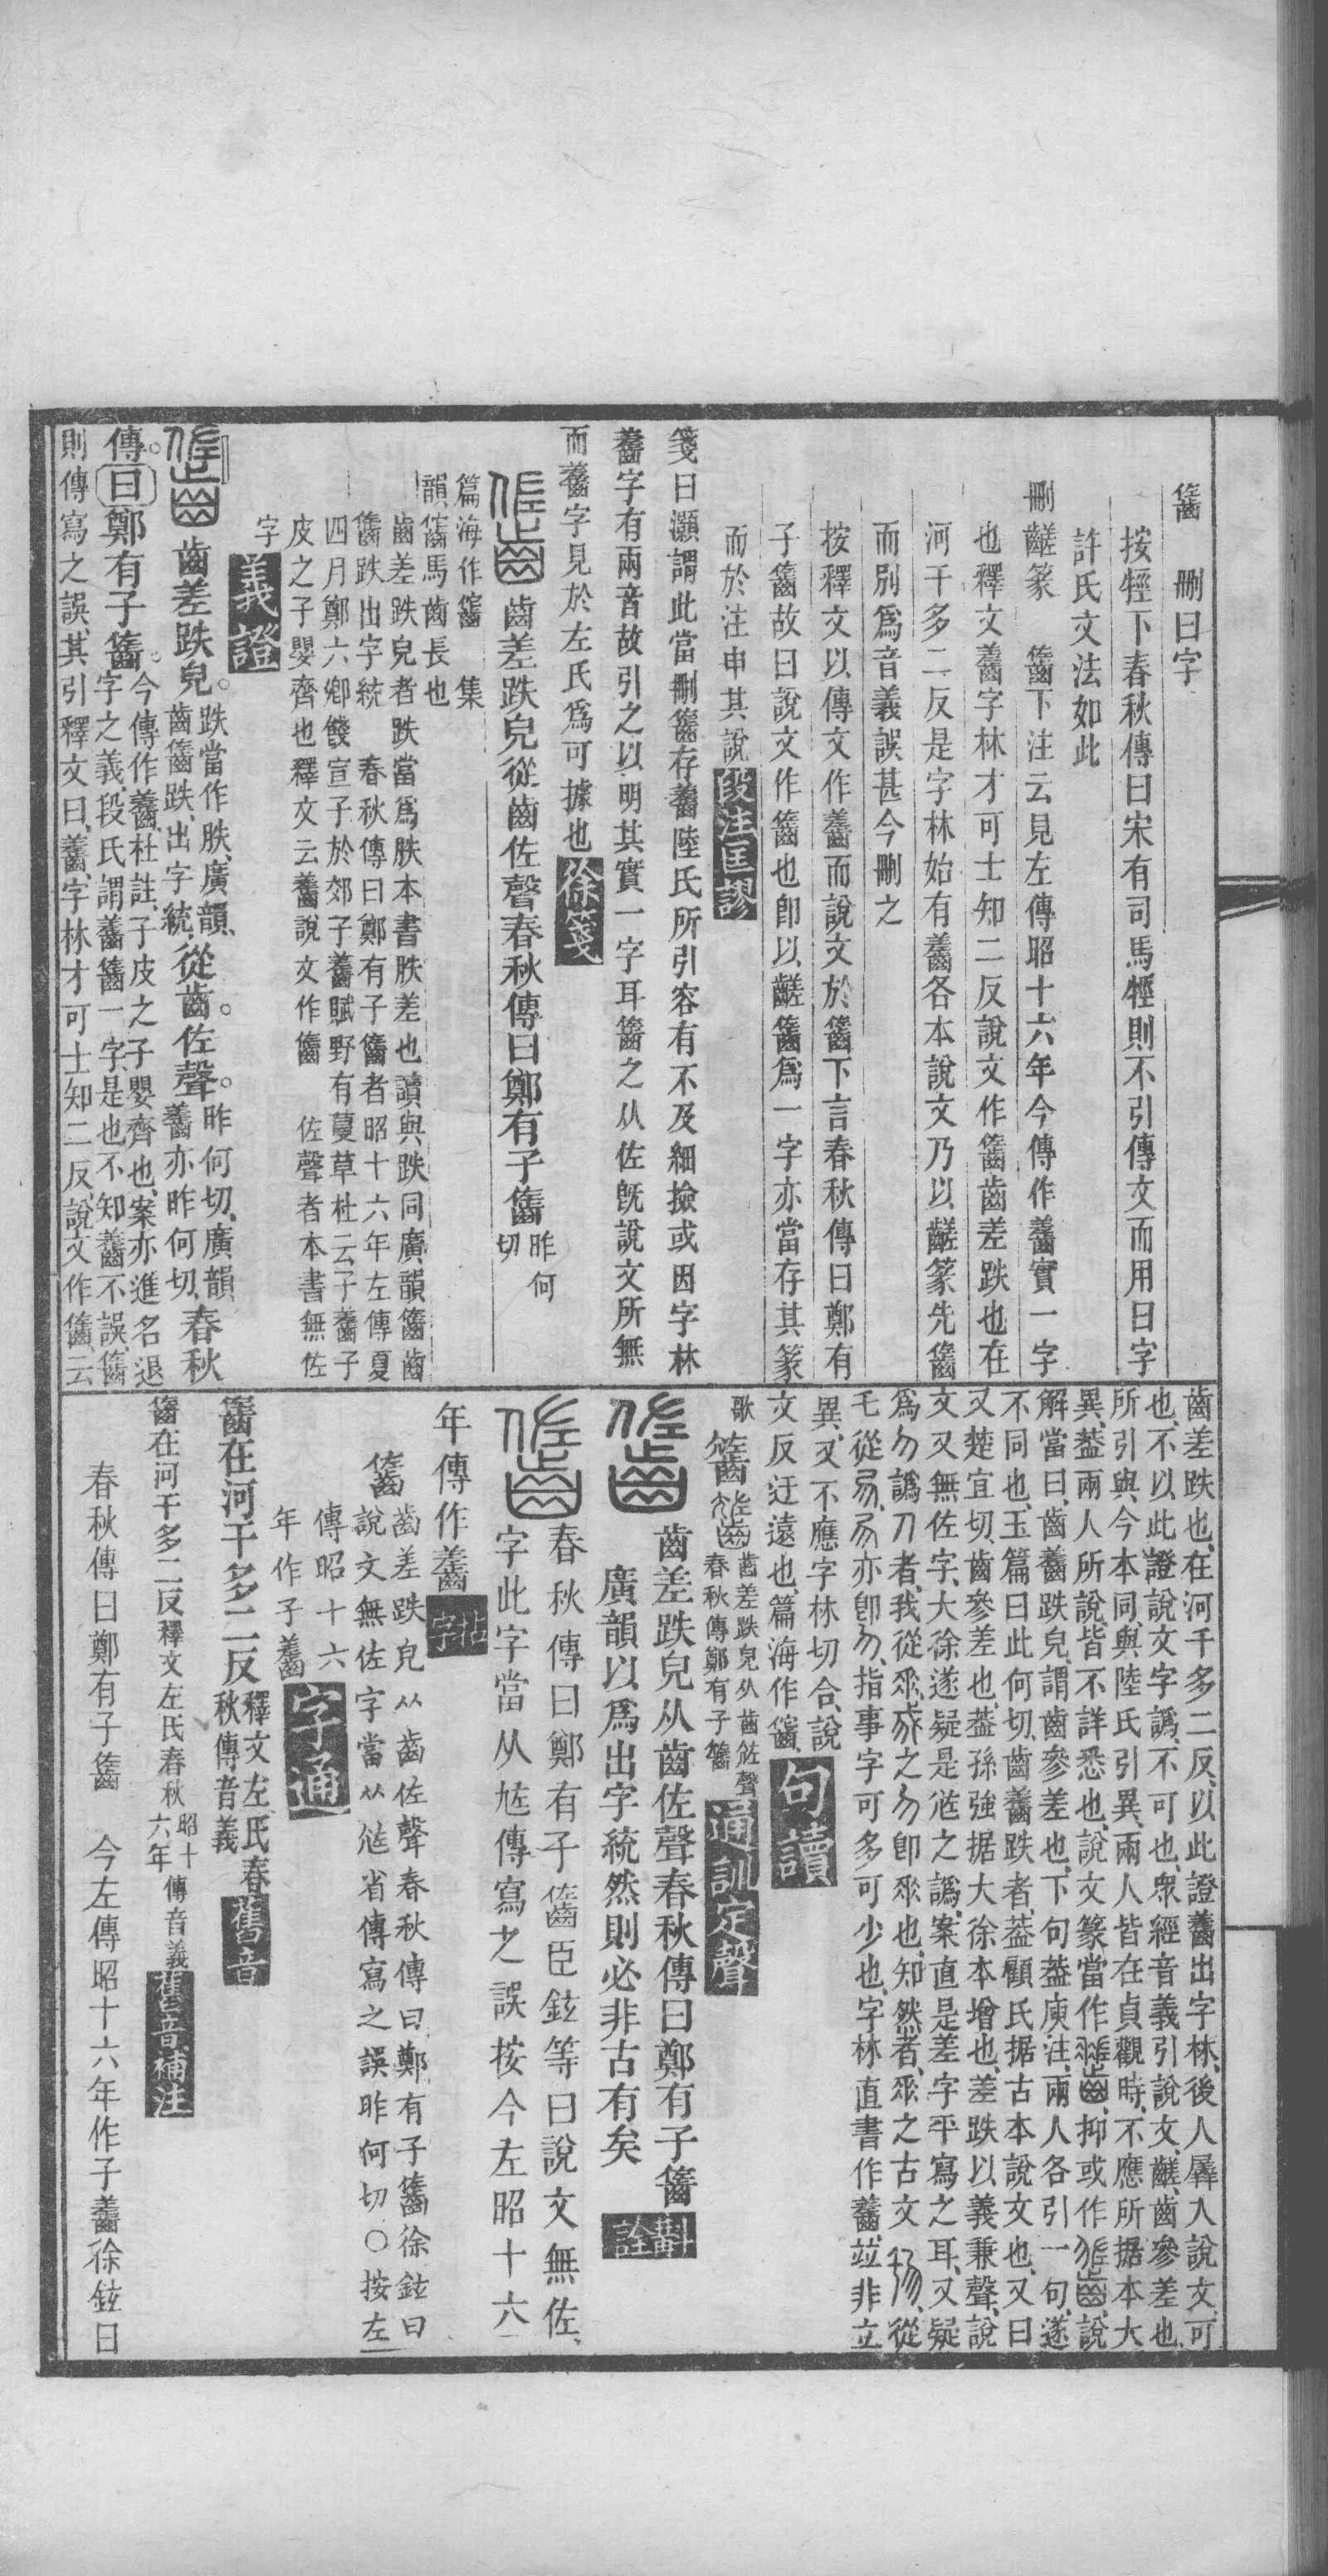 䶡　刪曰字
按牼下春秋傳曰宋有司馬牼則不引傳文而用曰字
許氏文法如此
刪齹篆　䶡下注云見左傳昭十六年今傳作齹實一字
也釋文齹字林才可士知二反說文作䶡齒差跌也在
河干多二反是字林始有齹各本說文乃以齹篆先䶡
而別爲音義誤甚今刪之
按釋文以傳文作齹而說文於䶡下言春秋傳曰鄭有
子䶡故曰說文作䶡也卽以齹䶡爲一字亦當存其篆
而於注申其說段注匡謬
箋曰灝謂此當刪䶡存齹陸氏所引容有不及細撿或因字林
齹字有兩音故引之以明其實一字耳䶡之从佐旣說文所無
而齹字見於左氏爲可據也徐箋
齒差跌皃從齒佐聲春秋傳曰鄭有子䶡昨何切
篇海作䶡　集
韻䶡馬齒長也
齒差跌皃者跌當爲胅本書胅差也讀與跌同廣韻䶡齒
䶡跌出字統　春秋傳曰鄭有子䶡者昭十六年左傳夏
四月鄭六卿餞宣子於郊子齹賦野有蔓草杜云子齹子
皮之子嬰齊也釋文云齹說文作䶡　佐聲者本書無佐
字義證
齒差跌皃。跌當作胅、廣韻、齒䶡跌、出字統、從齒。佐聲。昨何切、廣韻、齹亦昨何切、春秋
傳。曰鄭有子䶡。今傳作齹、杜註、子皮之子嬰齊也、案亦進名退字之義、段氏謂齹䶡一字、是也、不知齹不誤、䶡
則傳寫之誤、其引釋文曰、齹、字林才可士知二反、說文作䶡、云
齒差跌也、在河千多二反、以此證齹出字林、後人羼入說文、可
也、不以此證說文字譌、不可也、衆經音義引說文、齹、齒參差也、
所引與今本同、與陸氏引異、兩人皆在貞觀時、不應所据本大
異、葢兩人所說皆不詳悉也、說文篆當作、抑或作、說
解當曰、齒齹跌皃、謂齒參差也、下句葢庾注、兩人各引一句、遂
不同也、玉篇曰此何切、齒齹跌者、葢顧氏据古本說文也、又曰
又楚宜切、齒參差也、葢孫強据大徐本增也、差跌以義兼聲、說
文又無佐字、大徐遂疑是㔫之譌、案直是差字平寫之耳、又疑
爲勿譌刀者、我從𠂹、𢦓之勿卽𠂹也、知然者、𠂹之古文、從
乇從昜、昜亦卽勿、指事字可多可少也、字林直書作齹、竝非立
異、又不應字林切合、說
文反迂遠也、篇海作䶡、
句讀
歌䶡齒差跌皃从齒佐聲春秋傳鄭有子䶡通訓定聲
齒差跌皃从齒佐聲春秋傳曰鄭有子䶡
廣韻以爲出字統然則必非古有矣斠詮
春秋傳曰鄭有子䶡臣鉉等曰說文無佐、
字此字當从㝾傳寫之誤按今左昭十六
年傳作齹拈字
䶡齒差跌皃从齒佐聲春秋傳曰鄭有子䶡徐鉉曰
說文無佐字當从㝾省傳寫之誤昨何切〇按左
傳昭十六
年作子齹字通
䶡在河干多二反釋文左氏春秋傳音義舊音
䶡在河干多二反釋文左氏春秋昭十六年傳音義舊音補注
春秋傳曰鄭有子䶡　今左傳昭十六年作子齹徐鉉曰